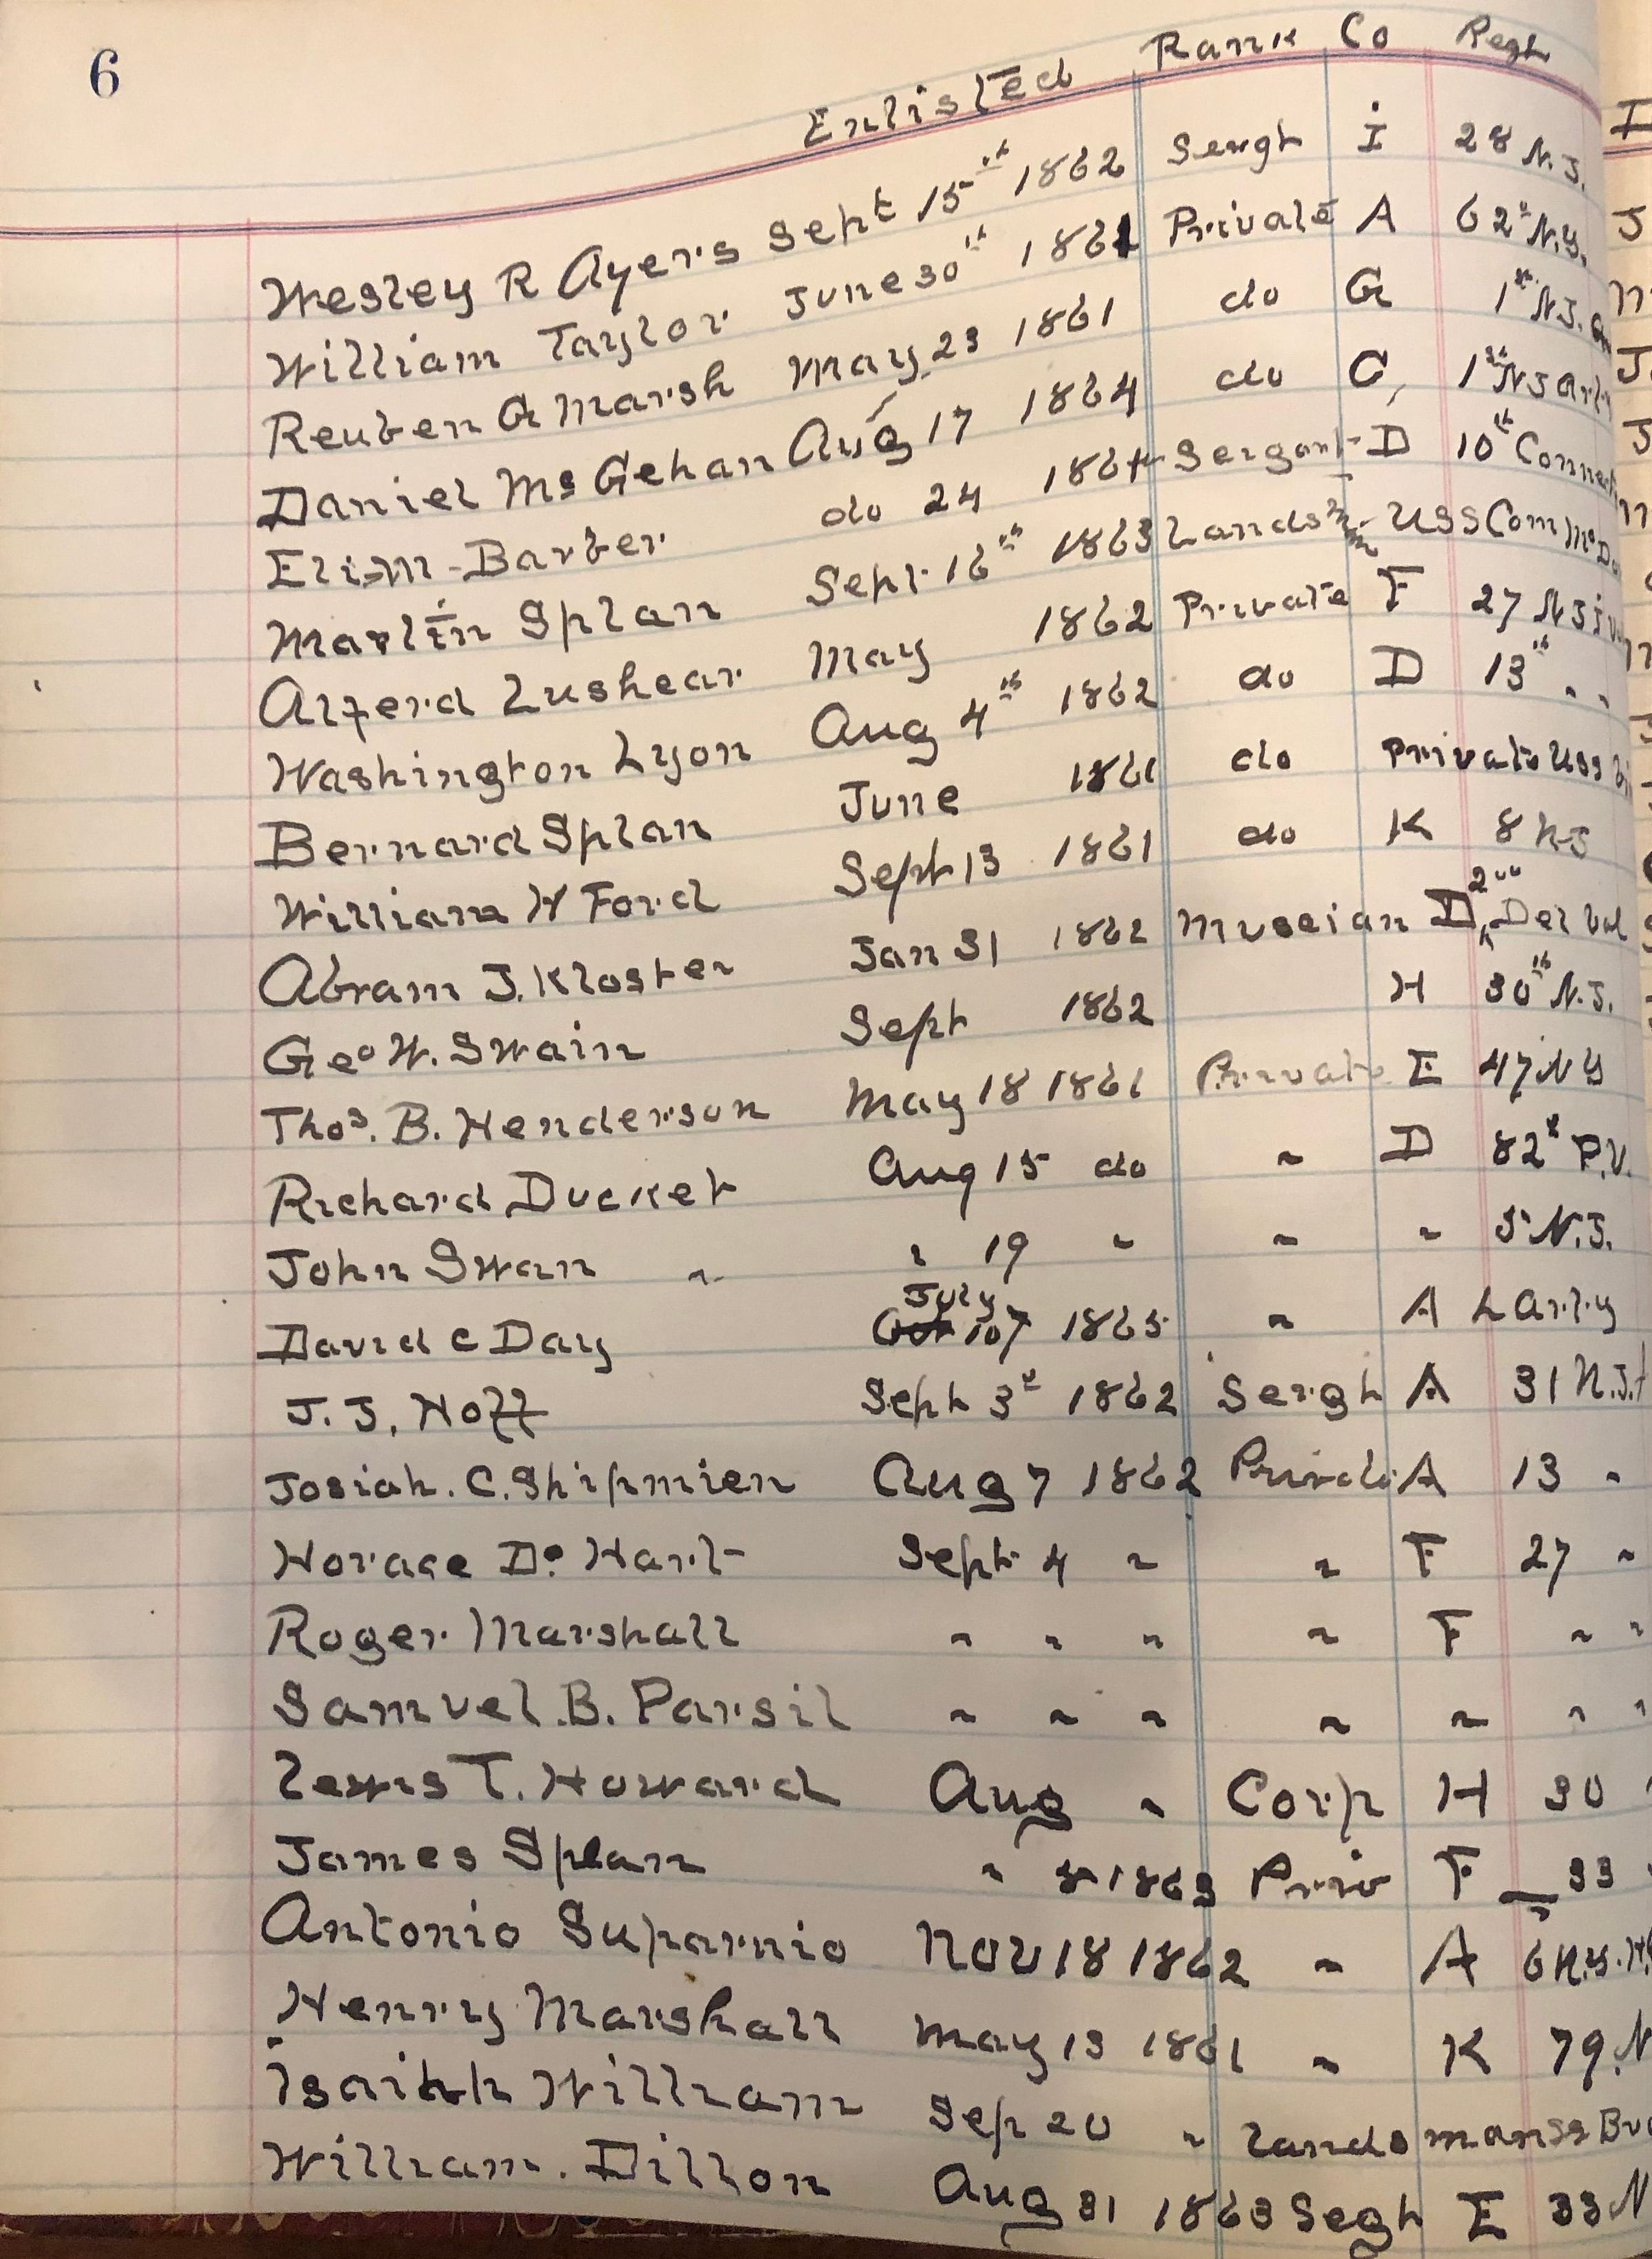 6
Enlisted Rank Co Regt
Wesley R Ayers Sept 15th 1862 Sergt I 28 N.J.
William Taylor June 30th 1861 Private A 62" N.Y.
Reuben G Marsh May 23 1861 do G 1st N.J.
Daniel Mc Gehan Aug 17 1864 do C, 1st N J Art
Eli M Barber do 24 1864 Sergant D 10th Connect
Martin Splan Sept 16th 1863 Landsm USS Com Mc Do
Alferd Lushear May 1862 Private F 27 N J
Washington Lyon Aug 4th 1862 do D 13" " "
Bernard Splan June 1861 do Private USS
William W Ford Sept 13 1861 do K 8 N J
Abram J. Kloster Jan 31 1862 Museian D, 2nd Del Vol
Geo W. Swain Sept 1862 H 30th N.J.
Thos. B. Henderson May 18 1861 Private E 47 N Y
Richard Ducket Aug 15 do " D 82" P.V.
John Swan " " 19 " " " 5 N.J.
July
David C Day Oct 107 1865 " A L Arly
J. J. Hoff Sept 3d 1862 Sergt A 31 N.J.
Josiah. C. Shipmien Aug 7 1862 Private A 13 "
Horace D. Hart Sept 4 " " F 27 "
Roger Marshall " " " " F " "
Samuel. B. Parsil " " " " " " "
Lewis T. Howard Aug " Corp H 30 "
James Splan " 8 1863 Priv F 33
Antonio Suparnio Nov 18 1862 " A 6 N.Y. H
Henry Marshall May 13 1861 " K 79. N
Isaihh William Sep 20 " Landsmanss
William. Dillon Aug 31 1863 Segt E 33 N